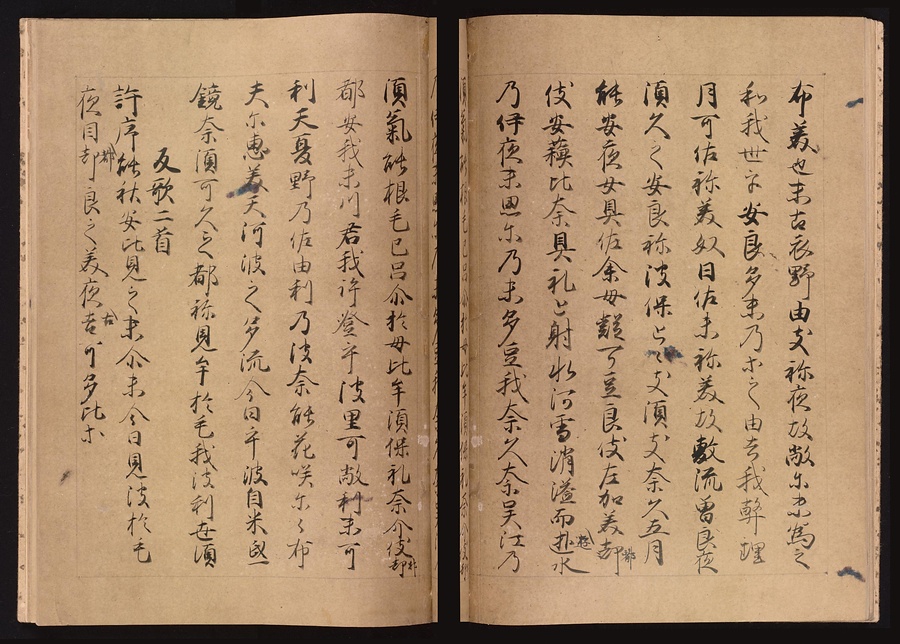 布美也末古衣野由支祢夜故敞尓末為之
和我世乎安良多末乃尓之由吉我幣理
月可佐祢美奴日佐末祢美故敷流曽良夜
須久之安良祢波保止々支須支奈久五月
能安夜女具佐余母蘰可豆良伎左加美都
伎安蘓比奈具礼止射水河雪消溢而逝水
乃伊夜末思尓乃未多豆我奈久奈呉江乃
須氣能根毛己呂尒於母比牟須保礼奈介伎都
都安我末川君我許登乎波里可敞利末可
利天夏野乃佐由利乃波奈能花咲尓々布
夫尓恵美天阿波之多流今日乎波自米弖
鏡奈須可久之都祢見牟於毛我波利世須
反歌二首
許序能秋安比見之末尒末今日見波於毛
夜目都良之美夜古可多比等